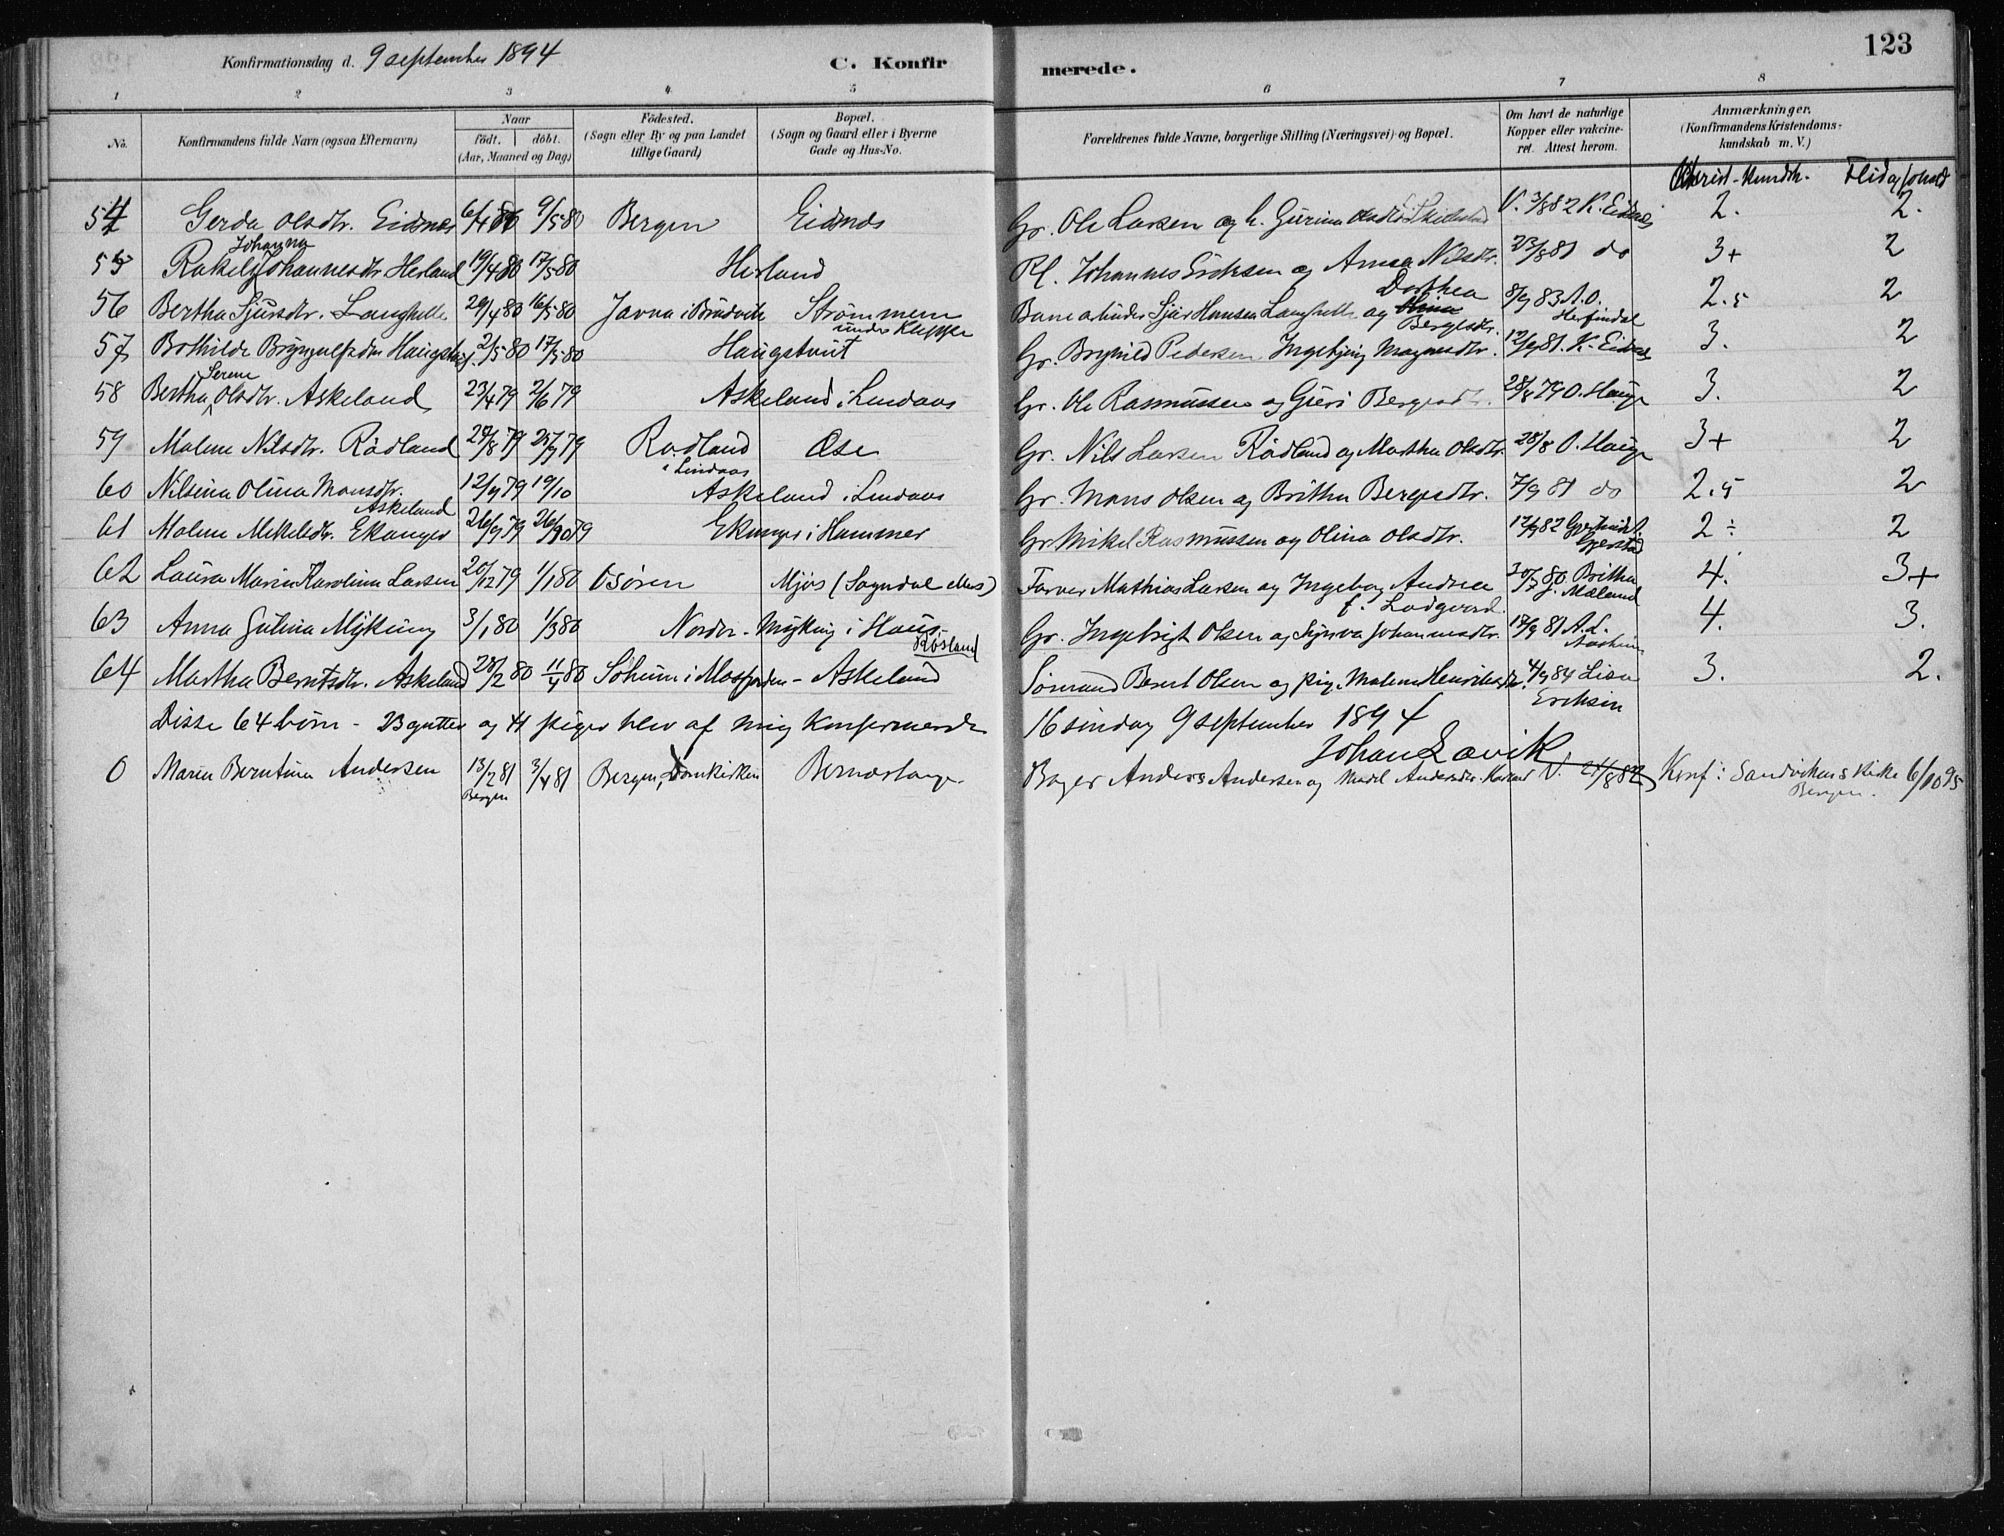 123
Konfirmationsdag d. 9 september 1894 C. Konfirmerede.
1 2 3 4 5 6 7 8
No. Konfirmandens fulde Navn (ogsaa Efternavn) Naar født. døbt. (Aar, Maaned og Dag) Fødested. (Sogn eller By og paa Landet tillige Gaard) Bopæl. (Sogn og Gaard eller i Byerne Gade og Hus-No. Forældrenes fulde Navne, borgerlige Stilling (Næringsvei) og Bopæl. Om havt de naturlige Kopper eller vakcineret. Attest herom. Anmærkninger. (Konfirmandens Kristendomskundskab m. V.)
Christ-kundsk. Flid og forhold
54 Gerda Olsdtr. Eidsnes 6/4 80 9/5 80 Bergen Eidsnes Gr. Ole Larsen og h. Gurina V. 82 K. Eidsnes 2. 2.
55 Rakel Johanna Johannesdtr Herland 19/4 80 17/5 80 Herland Pl. Johannes Eriksen og Anna Nilsdtr. 23/8 81 do 3+ 2
56 Bertha Sjursdtr. Langhelle 29/4 80 16/5 80 Javna i Bruvik Strømmen under Kleppe Banearbeider Sjur Hansen Langhelle og Dorthea Bergesdtr. 8/9 83 A.O. Herfindal 2.5 2
57 Bothilde Bryngelfsdtr Haugstvej. 2/5 80 17/5 80 Haugstveit Gr. Brynild Pedersen Ingebjørg Magnesdtr. 12/9 81. K. Eidsnes 3. 2
58 Bertha Serene Olsdtr. Askeland 23/4 79 2/6 79 Askeland i Lindaas Gr. Ole Rasmussen og Guri Bergesdtr. 28/8 79 O. Hauge 3. 2
59 Malene Nilsdtr. Rødland 24/8 79 25/9 79 Rødland i Lindaas Øse Gr. Nils Larsen Rødland og Martha Olsdtr. 28/8 O. Hauge 3+ 2
60 Nilsina Olina Monsdtr. Askeland 12/9 79 19/10 Askeland i Lindaas Gr. Mons Olsen og Britha Bergesdtr. 7/9 81 do 2.5 2
61 Malene Mikelsdtr. Ekanger 26/9 79 26/10 79 Ekanger i Hammer Gr Mikel Rasmussen og Olina Olsdtr. 12/9 82 Gjerstad 2÷ 2
62 Laura Marie Karoline Larsen 20/12 79 1/1 80 Osøren Mjøs (Sogndal ellers) Farver Mathias Larsen og Ingeborg Andrea f. Lodgaard. 30/7 80. Britha J. Mæland 4. 3+
63 Anna Gulina Myking 3/1 80 1/3 80 Nordre-Myking i Haus Gr. Ingebrigt Olsen og Synva Johannesdtr. 17/9 81 A.L. 4. 3.
64 Martha Berntsdtr. Askeland 28/2 80 11/4 80 Solheim i Masfjorden - Askeland Røsland Sømand Bernt Olsen og pige Malene Henriksdtr. 4/9 84 Lisa Eriksen 3. 2.
Disse 64 børn - 23 gutter og 41 piger blev af mig konfirmerede 16 søndag 9 september 1894
Johan Lavik
0 Maria Berntina Andersen 13/2 81 Bergen 3/4 81 Bergen, Domkirken Bernestangen Bager Anders Andersen og Andersdtr. V. 21/8 82 Konf. i Sandvikens Kirke Bergen. 6/10 95